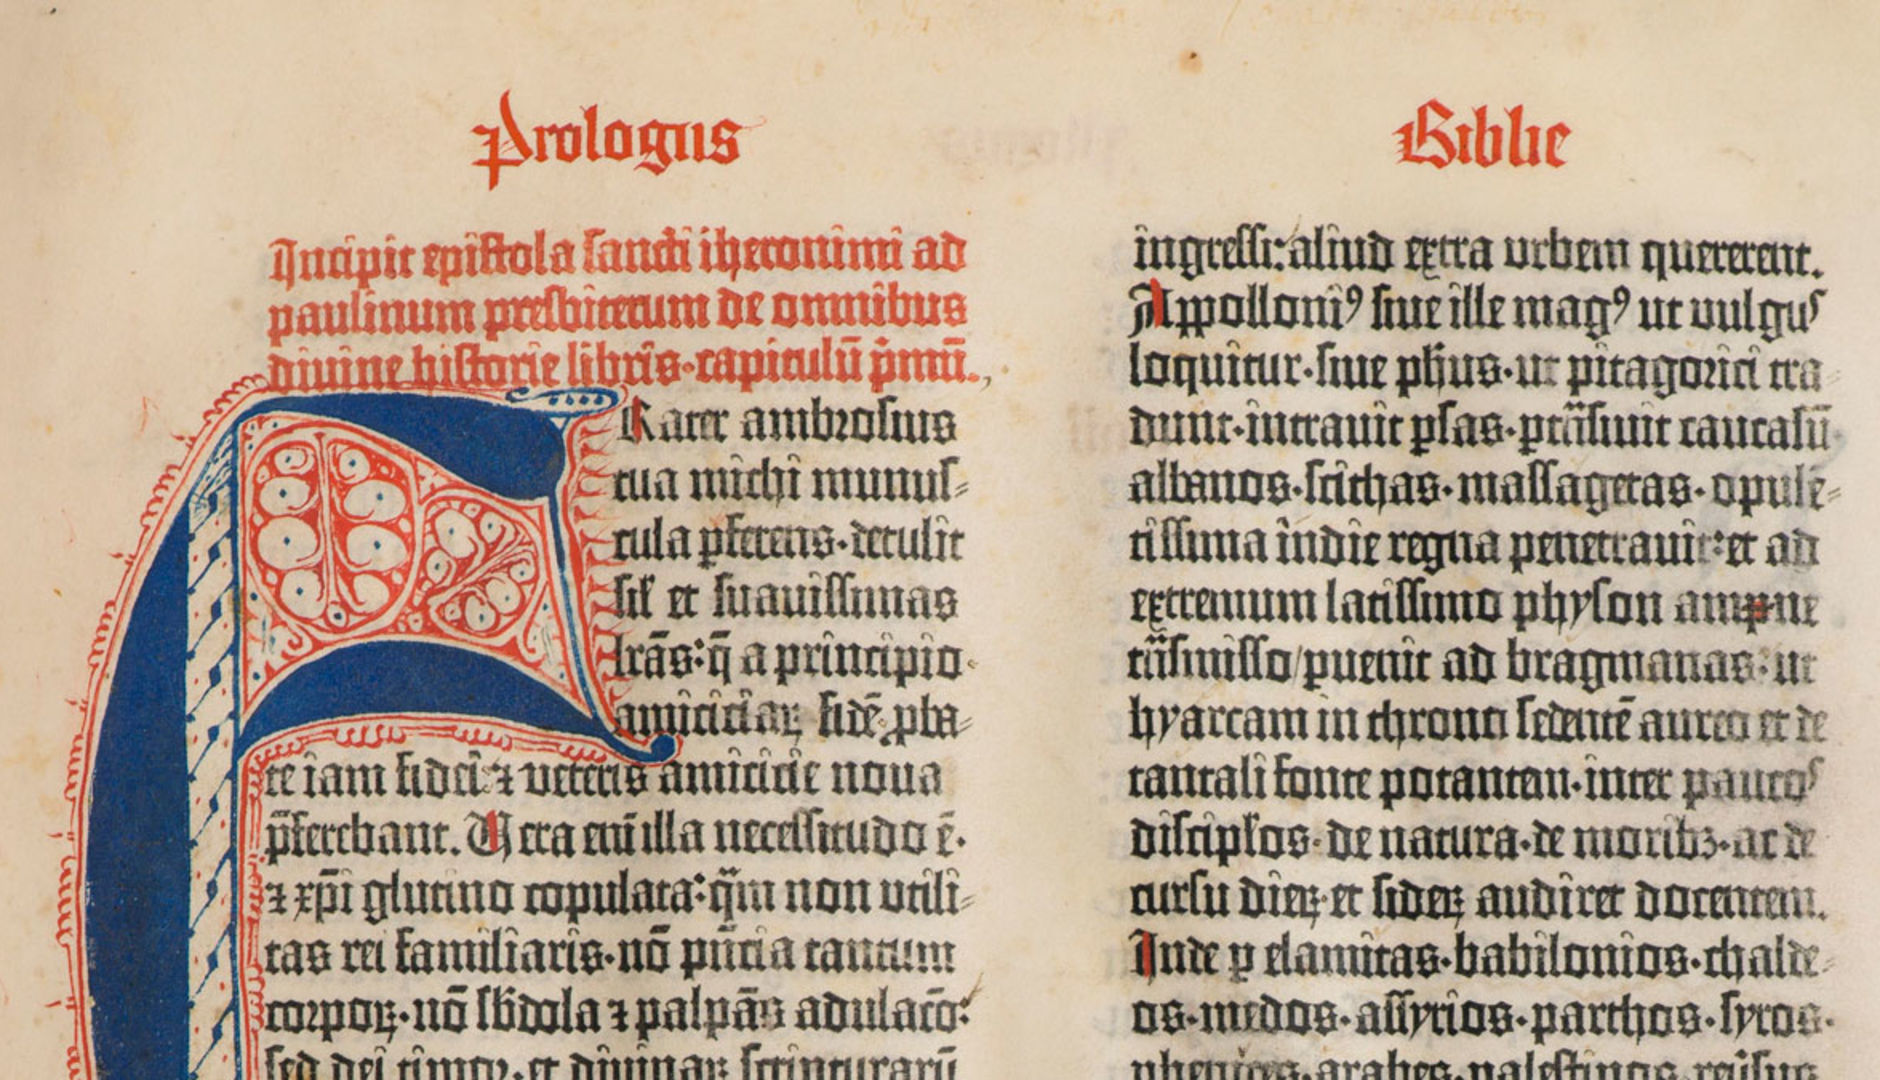 Prologus
Incipit epistola sancti iheronimi ad
paulinum presbiterum de omnibus
divine historie libris·capitulū p̄mū.
Frater ambrosius
tua michi munus-
cula ꝑferens·detulit
sil' et suavissimas
lrās:q̄ a principio
amiciciaꝝ fidē ꝓba-
te iam fidei ⁊ veteris amicicie nova
p̄ferebant. Vera eni illa necessitudo ē·
⁊ xp̄i glutino copulata:q̄m non utili-
tas rei familiaris·nō pn̄cia tantum
corpoꝝ·nō sb̄dola ⁊ palpās adulacō:
sed dei timor·et divinaꝝ scripturarū
Biblie
ingressi:aliud extra urbem quererent.
Appolloniꝰ sive ille magꝰ ut vulgus
loquitur·sive ph̄us·ut pitagorici tra-
dunt·intravit ꝑsas·ꝑtrāsivit caucasū·
albanos·scithas·massagetas·opulē-
tissima indie regna penetravit:et ad
extremum latissimo physon ampne
trāsmisso/ꝑvenit ad bragmanas:ut
hyarcam in throno sedentē aureo et de
tantali fonte potantem·inter paucos
discipl'os·de natura·de moribꝫ·ac de
cursu dieꝝ·et sideꝝ audiret docentem.
Inde ꝑ elamitas·babilonios·chalde-
os·medos·assyrios·parthos·syros·
phenices·arabes·palestinos·rev̄sus